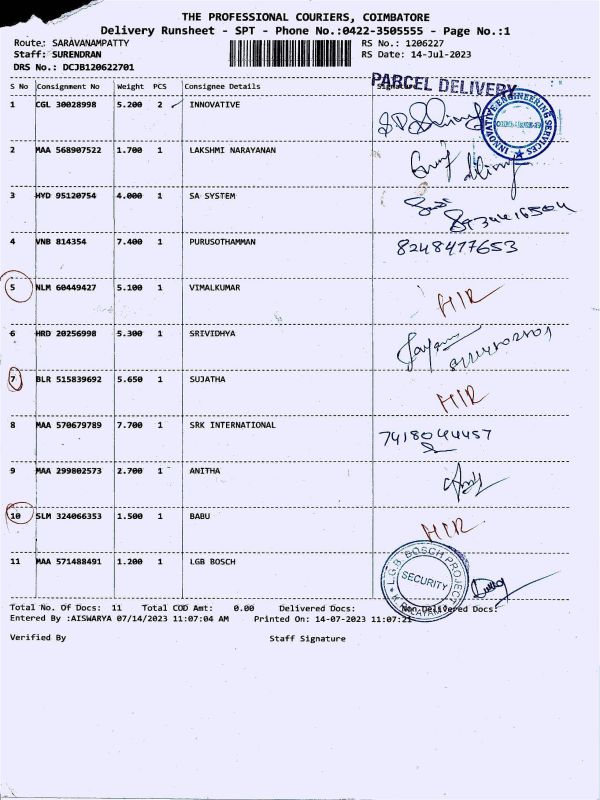 THE PROFESSIONAL COURIERS, COIMBATORE
Delivery Runsheet - SPT - Phone No.:0422-3505555 - Page No.:1
Route: SARAVANAMPATTY RS No.: 1206227
Staff: SURENDRAN RS Date: 14-Jul-2023
DRS No.: DCJB120622701
PARCEL DELIVERY
S No Consignment No Weight PCS Consignee Details
1 CGL 30028998 5.200 2 INNOVATIVE
INNOVATIVE ENGINEERING SERVICES
2 MAA 568907522 1.700 1 LAKSHMI NARAYANAN
3 HYD 95120754 4.000 1 SA SYSTEM
4 VNB 814354 7.400 1 PURUSOTHAMMAN 8248477653
5 NLM 60449427 5.100 1 VIMALKUMAR HIR
6 HRD 20256998 5.300 1 SRIVIDHYA
7 BLR 515839692 5.650 1 SUJATHA HIR
8 MAA 570679789 7.700 1 SRK INTERNATIONAL 7418044457
9 MAA 299802573 2.700 1 ANITHA
10 SLM 324066353 1.500 1 BABU HIR
11 MAA 571488491 1.200 1 LGB BOSCH
L.G.B. BOSCH PROJECT
SECURITY
Total No. Of Docs: 11 Total COD Amt: 0.00 Delivered Docs: Non Delivered Docs:
Entered By :AISWARYA 07/14/2023 11:07:04 AM Printed On: 14-07-2023 11:07:21
Verified By Staff Signature